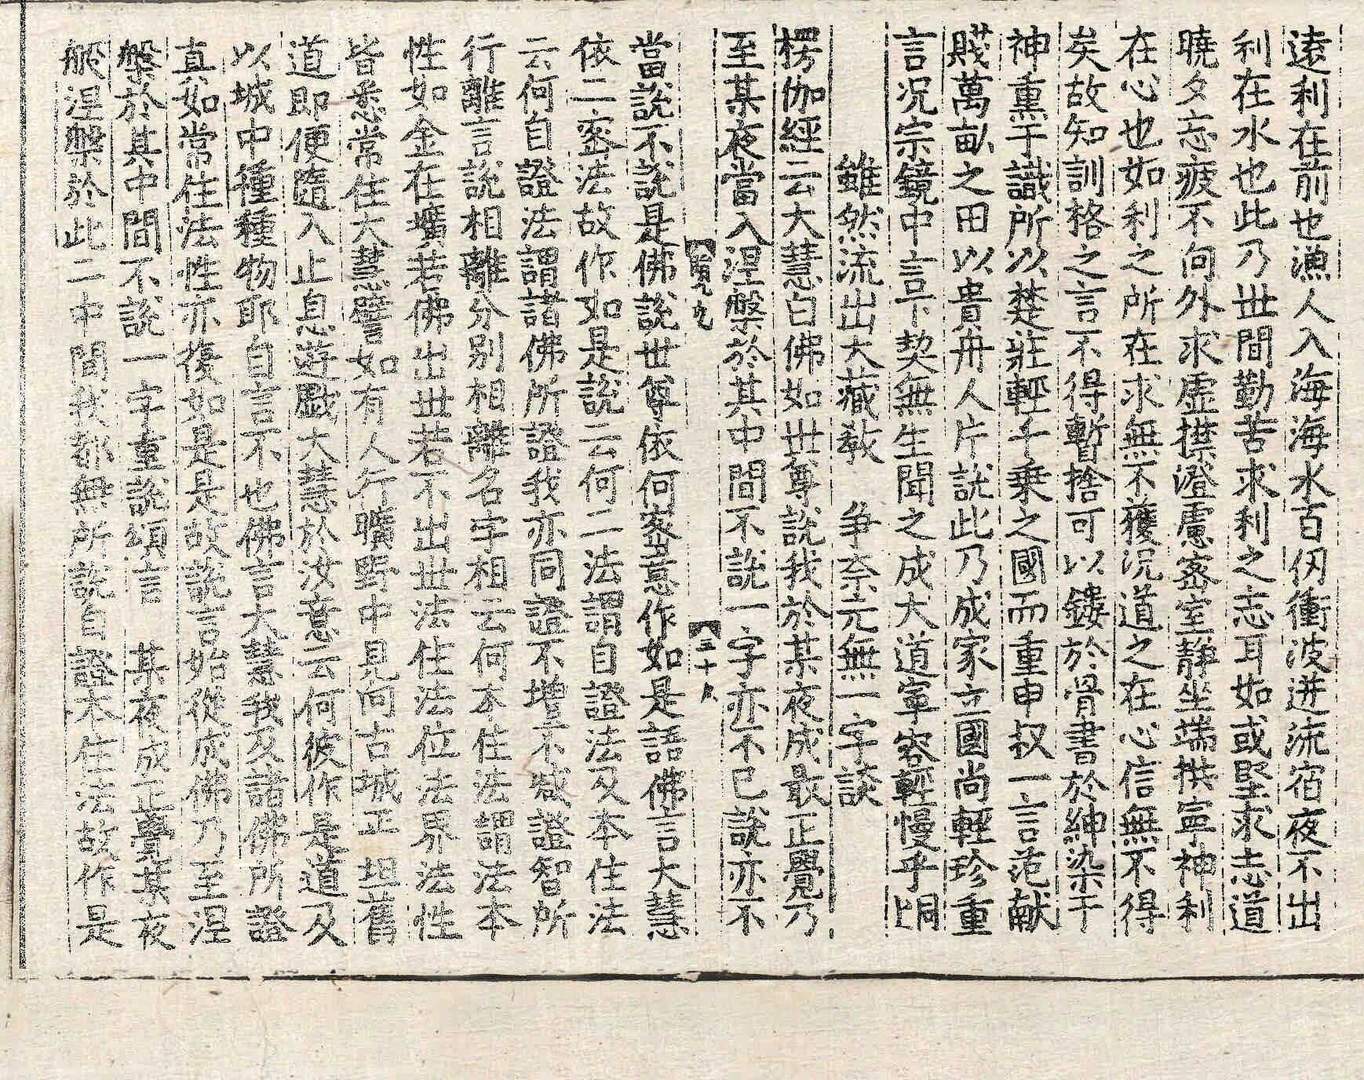 遠利在前也漁人入海海水百仞衝波逆流宿夜不出
利在水也此乃世間勤苦求利之志耳如或堅求志道
曉夕忘疲不向外求虛襟澄慮密室靜坐端拱寧神利
在心也如利之所在求無不獲況道之在心信無不得
矣故知訓格之言不得暫捨可以鏤於骨書於紳染于
神熏于識所以楚莊輕千乘之國而重申叔一言范献
賤萬畝之田以貴舟人片說此乃成家立國尚輕珍重
言況宗鏡中言下契無生聞之成大道寧容輕慢乎炯
雖然流出大藏敎　爭奈元無一字談
楞伽經云大慧白佛如世尊說我於某夜成最正覺乃
至某夜當入涅槃於其中間不說一字亦不已說亦不
三十
當說不說是佛說世尊依何密意作如是語佛言大慧
依二密法故作如是說云何二法謂自證法及本住法
云何自證法謂諸佛所證我亦同證不增不減證智所
行離言說相離分別相離名字相云何本住法謂法本
性如金在壙若佛出世若不出世法住法位法界法性
皆悉常住大慧譬如有人行曠野中見向古城正坦舊
道即便隨入止息遊戱大慧於汝意云何彼作是道及
以城中種種物耶自言不也佛言大慧我及諸佛所證
真如常住法性亦復如是是故說言始從成佛乃至涅
槃於其中間不說一字重說頌言　某夜成正覺某夜
般涅槃於此二中間我都無所說自證本住法故作是